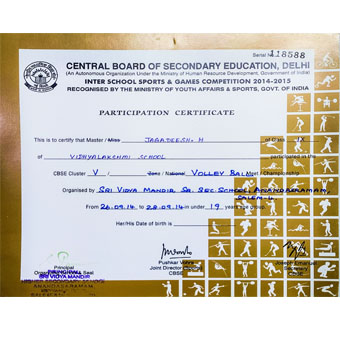 Serial No 118588
CENTRAL BOARD OF SECONDARY EDUCATION, DELHI
(An Autonomous Organization Under the Ministry of Human Resource Development, Government of India)
INTER SCHOOL SPORTS & GAMES COMPETITION 2014-2015
RECOGNISED BY THE MINISTRY OF YOUTH AFFAIRS & SPORTS, GOVT. OF INDIA
PARTICIPATION CERTIFICATE
This is to certify that Master / Miss JAGATEESH. H of Class IX
of VIDHYALAKSHMI SCHOOL participated in the
CBSE Cluster V / Zone / National VOLLEY BALL Meet / Championship
Organised by SRI VIDYA MANDIR SR. SEC. SCHOOL, ANANDASRAMAM, SALEM-4.
From 26.09.14 to 28.09.14 in under 19 years age group.
Her/His Date of birth is
Principal
PRINCIPAL
SRI VIDYA MANDIR
HIGHER SECONDARY SCHOOL
ANANDASRAMAM
Pushkar Vohra
Joint Director
CBSE
Joseph Emanuel
Secretary